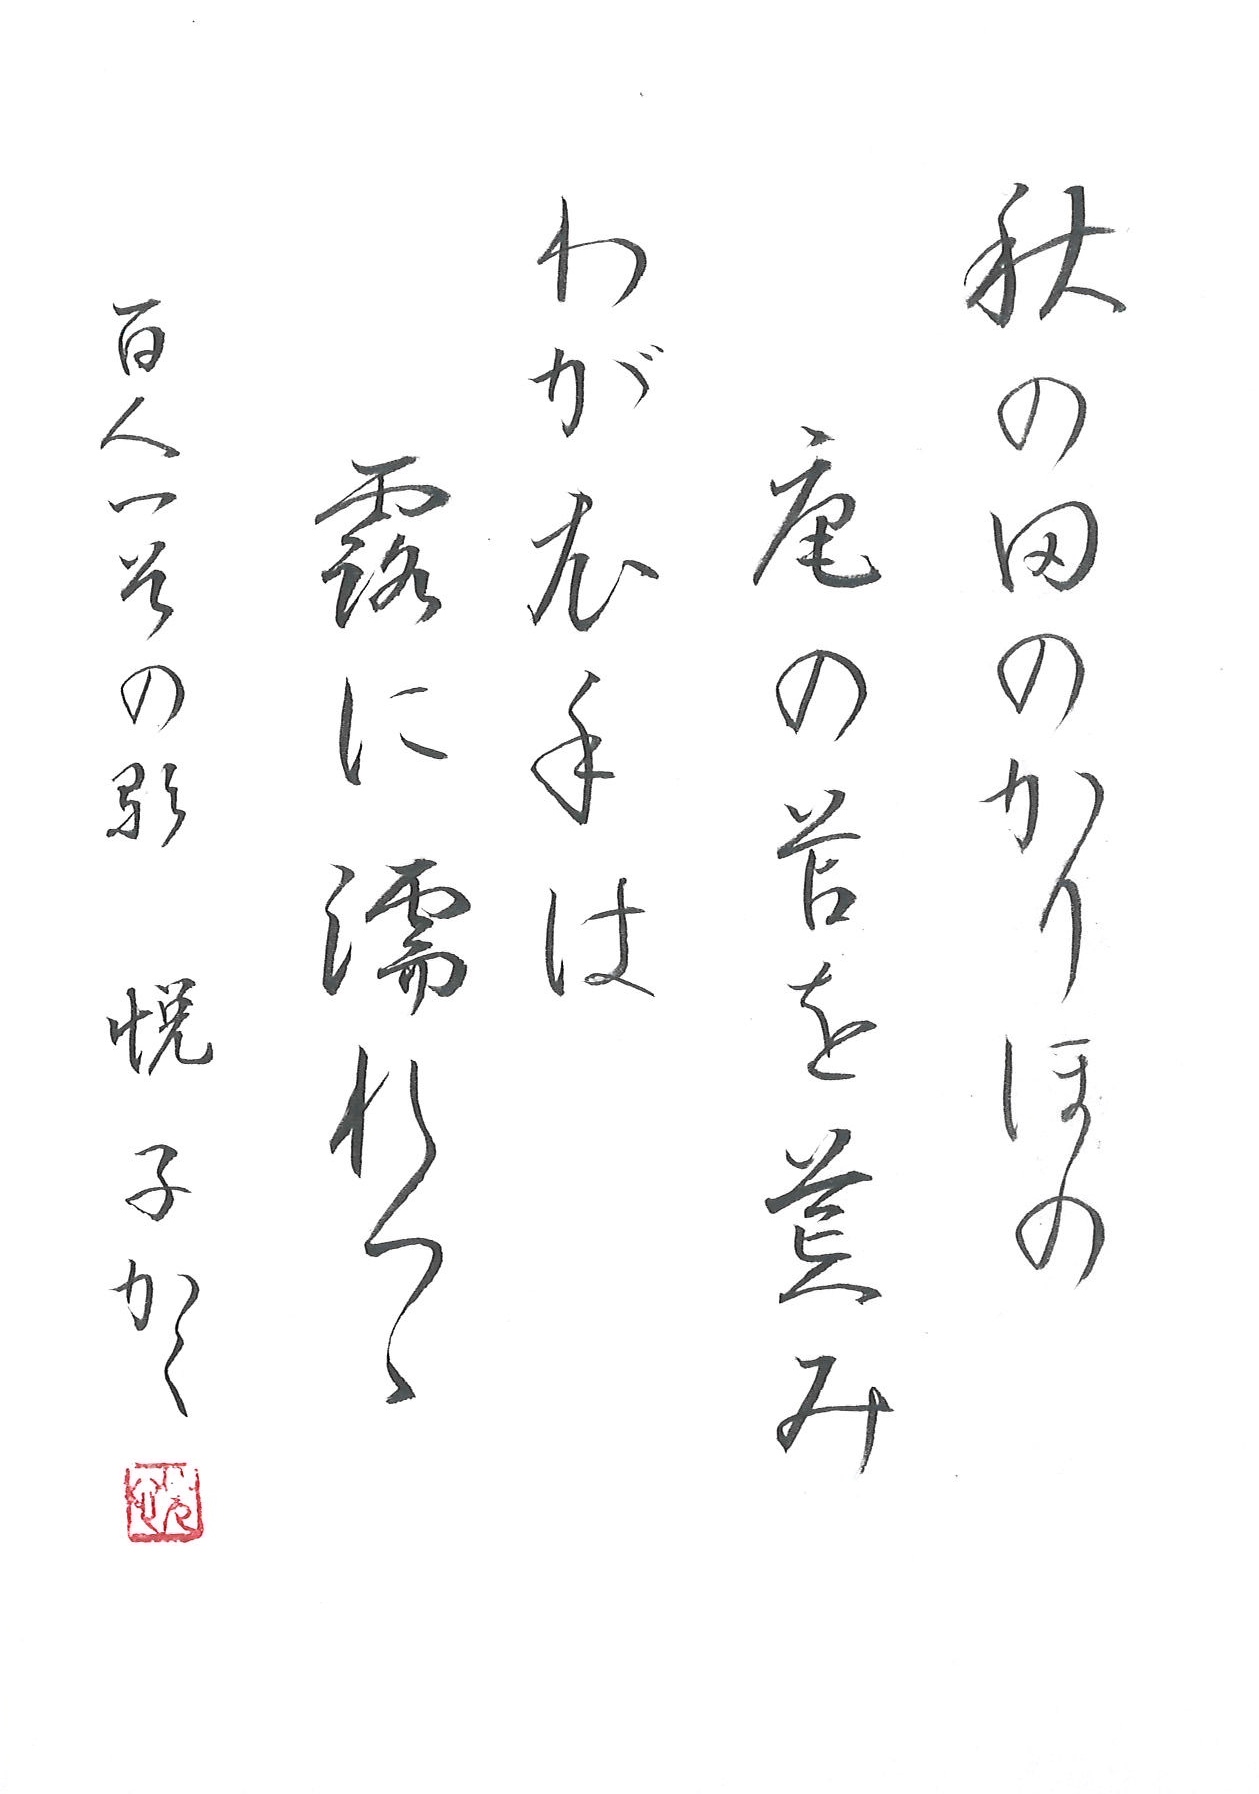 秋の田のかりほの
庵の苫を荒み
わが衣手は
露に濡れつゝ
百人一首の歌 悦子かく